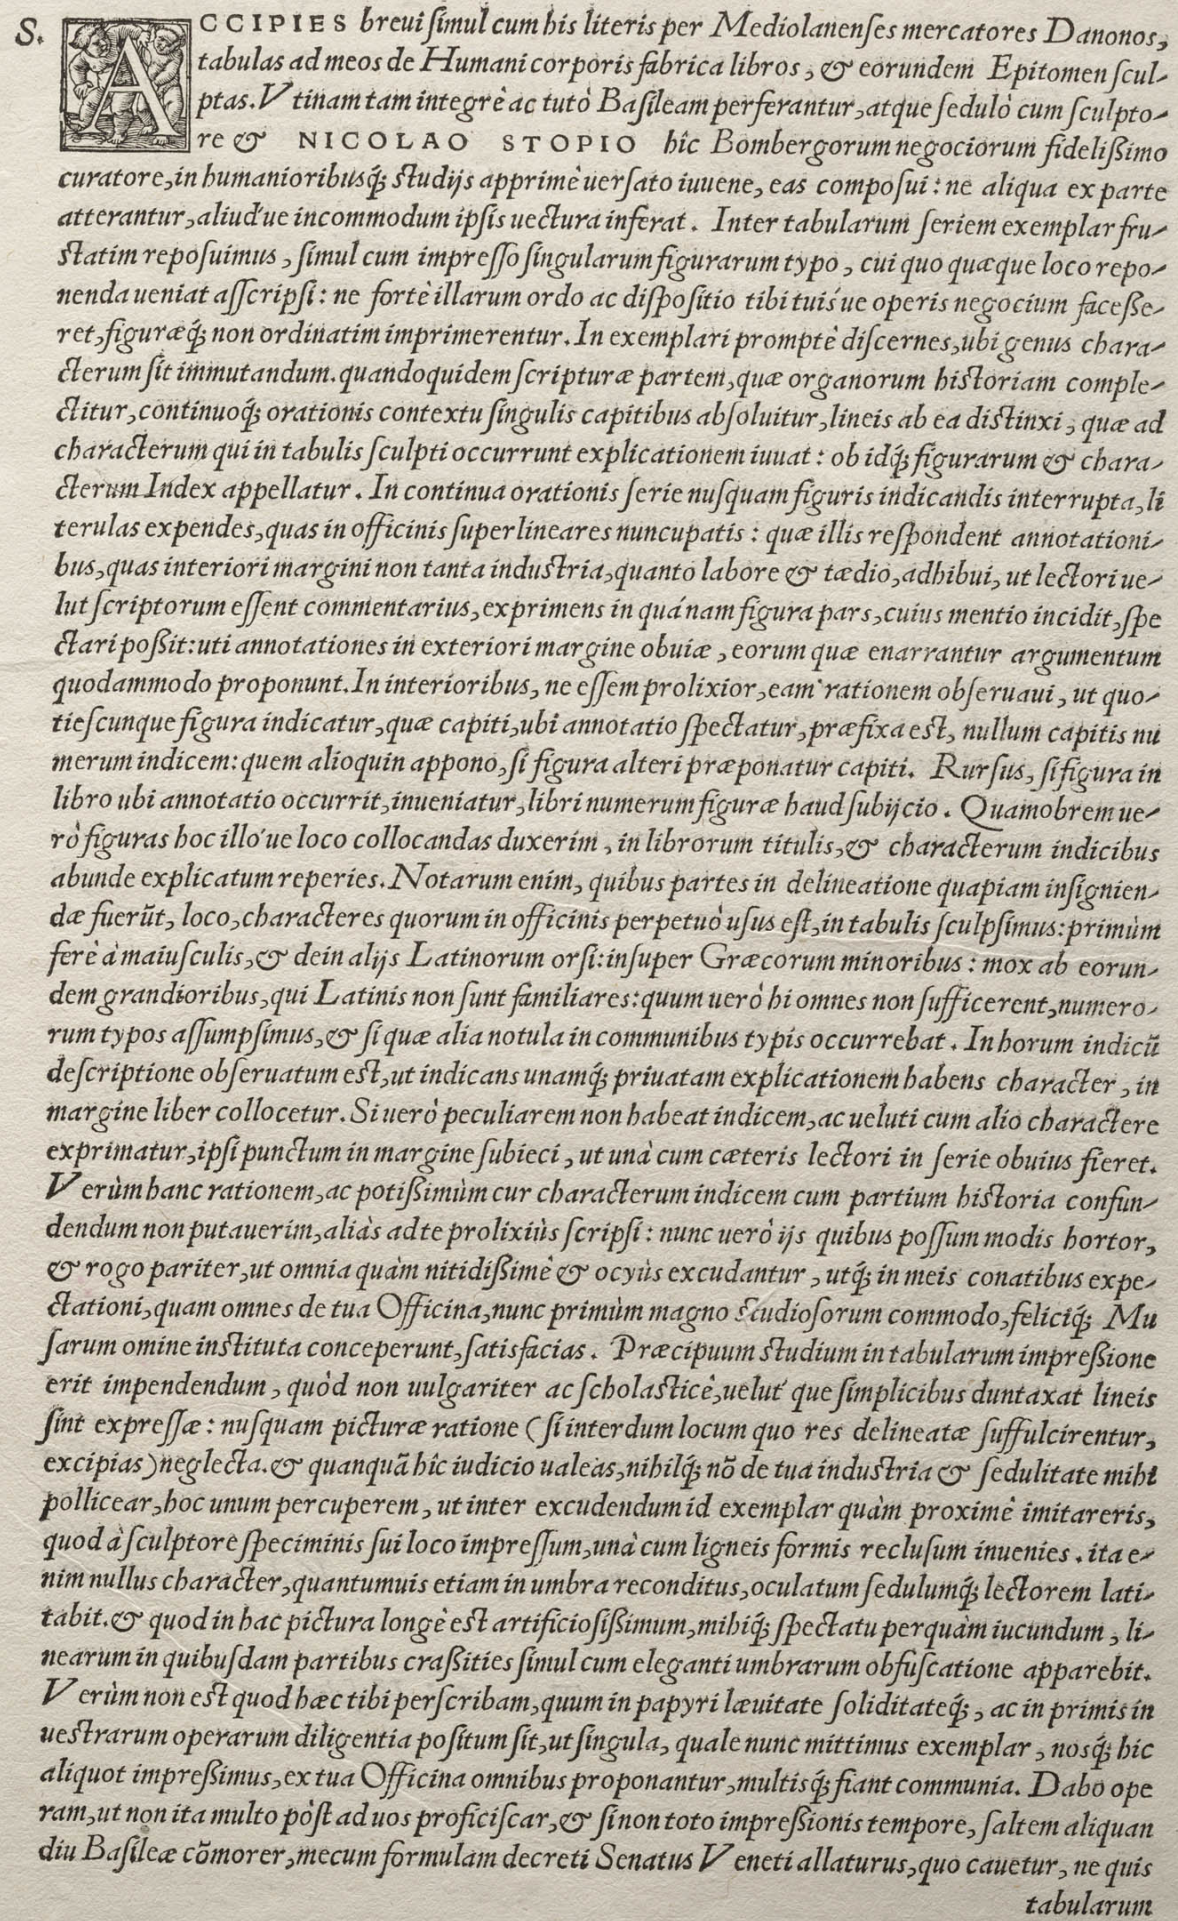 S. ACCIPIES breui ſimul cum his literis per Mediolanenſes mercatores Danonos,
tabulas ad meos de Humani corporis fabrica libros, & eorundem Epitomen ſcul-
ptas. Vtinam tam integrè ac tutò Baſileam perferantur, atque ſedulò cum ſculpto-
re & NICOLAO STOPIO hîc Bombergorum negociorum fidelißimo
curatore, in humanioribusq́; ſtudijs apprimè uerſato iuuene, eas compoſui: ne aliqua ex parte
atterantur, aliud'ue incommodum ipſis uectura inferat. Inter tabularum ſeriem exemplar fru-
ſtatim repoſuimus, ſimul cum impreſſo ſingularum figurarum typo, cui quo quæque loco repo-
nenda ueniat aſſcripſi: ne fortè illarum ordo ac diſpoſitio tibi tuis'ue operis negocium faceße-
ret, figuræq́; non ordinatim imprimerentur. In exemplari promptè diſcernes, ubi genus chara-
cterum ſit immutandum. quandoquidem ſcripturæ partem, quæ organorum hiſtoriam comple-
ctitur, continuoq́; orationis contextu ſingulis capitibus abſoluitur, lineis ab ea diſtinxi, quæ ad
characterum qui in tabulis ſculpti occurrunt explicationem iuuat: ob idq́; figurarum & chara-
cterum Index appellatur. In continua orationis ſerie nuſquam figuris indicandis interrupta, li
terulas expendes, quas in officinis ſuperlineares nuncupatis: quæ illis reſpondent annotationi-
bus, quas interiori margini non tanta induſtria, quanto labore & tædio, adhibui, ut lectori ue-
lut ſcriptorum eſſent commentarius, exprimens in quánam figura pars, cuius mentio incidit, ſpe
ctari poßit: uti annotationes in exteriori margine obuiæ, eorum quæ enarrantur argumentum
quodammodo proponunt. In interioribus, ne eſſem prolixior, eam rationem obſeruaui, ut quo-
tieſcunque figura indicatur, quæ capiti, ubi annotatio ſpectatur, præfixa eſt, nullum capitis nu
merum indicem: quem alioquin appono, ſi figura alteri præponatur capiti. Rurſus, ſi figura in
libro ubi annotatio occurrit, inueniatur, libri numerum figuræ haud ſubijcio. Quamobrem ue-
rò figuras hoc illo'ue loco collocandas duxerim, in librorum titulis, & characterum indicibus
abunde explicatum reperies. Notarum enim, quibus partes in delineatione quapiam inſignien-
dæ fuerūt, loco, characteres quorum in officinis perpetuò uſus eſt, in tabulis ſculpſimus: primùm
ferè à maiuſculis, & dein alijs Latinorum orſi: inſuper Græcorum minoribus: mox ab eorun-
dem grandioribus, qui Latinis non ſunt familiares: quum uerò hi omnes non ſufficerent, numero-
rum typos aſſumpſimus, & ſi quæ alia notula in communibus typis occurrebat. In horum indicū
deſcriptione obſeruatum eſt, ut indicans unamq́; priuatam explicationem habens character, in
margine liber collocetur. Si uerò peculiarem non habeat indicem, ac ueluti cum alio charactere
exprimatur, ipſi punctum in margine ſubieci, ut unà cum cæteris lectori in ſerie obuius fieret.
Verùm hanc rationem, ac potißimùm cur characterum indicem cum partium hiſtoria confun-
dendum non putauerim, aliàs ad te prolixiùs ſcripſi: nunc uerò ijs quibus poſſum modis hortor,
& rogo pariter, ut omnia quàm nitidißimè & ocyùs excudantur, utq́; in meis conatibus expe-
ctationi, quam omnes de tua Officina, nunc primùm magno ſtudioſorum commodo, feliciq́; Mu
ſarum omine inſtituta conceperunt, ſatisfacias. Præcipuum ſtudium in tabularum impreßione
erit impendendum, quòd non uulgariter ac ſcholaſticè, uelut' que ſimplicibus duntaxat lineis
ſint expreſſæ: nuſquam picturæ ratione (ſi interdum locum quo res delineatæ ſuffulcirentur,
excipias) neglecta. & quanquā hîc iudicio ualeas, nihilq́; nō de tua induſtria & ſedulitate mihi
pollicear, hoc unum percuperem, ut inter excudendum id exemplar quàm proximè imitareris,
quod à ſculptore ſpeciminis ſui loco impreſſum, unà cum ligneis formis recluſum inuenies. ita e-
nim nullus character, quantumuis etiam in umbra reconditus, oculatum ſedulumq́; lectorem lati-
tabit. & quod in hac pictura longè eſt artificioſißimum, mihiq́; ſpectatu perquàm iucundum, li-
nearum in quibuſdam partibus craßities ſimul cum eleganti umbrarum obfuſcatione apparebit.
Verùm non eſt quod hæc tibi perſcribam, quum in papyri læuitate ſoliditateq́;, ac in primis in
ueſtrarum operarum diligentia poſitum ſit, ut ſingula, quale nunc mittimus exemplar, nosq́; hic
aliquot impreßimus, ex tua Officina omnibus proponantur, multisq́; fiant communia. Dabo ope
ram, ut non ita multo pòſt ad uos proficiſcar, & ſi non toto impreßionis tempore, ſaltem aliquan
diu Baſileæ cōmorer, mecum formulam decreti Senatus Veneti allaturus, quo cauetur, ne quis
tabularum